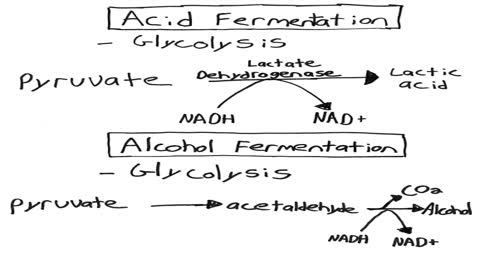 Acid Fermentation
- Glycolysis
Pyruvate Lactate Dehydrogenase Lactic acid
NADH NAD+
Alcohol Fermentation
- Glycolysis
Pyruvate acetaldehyde CO2 Alcohol
NADH NAD+